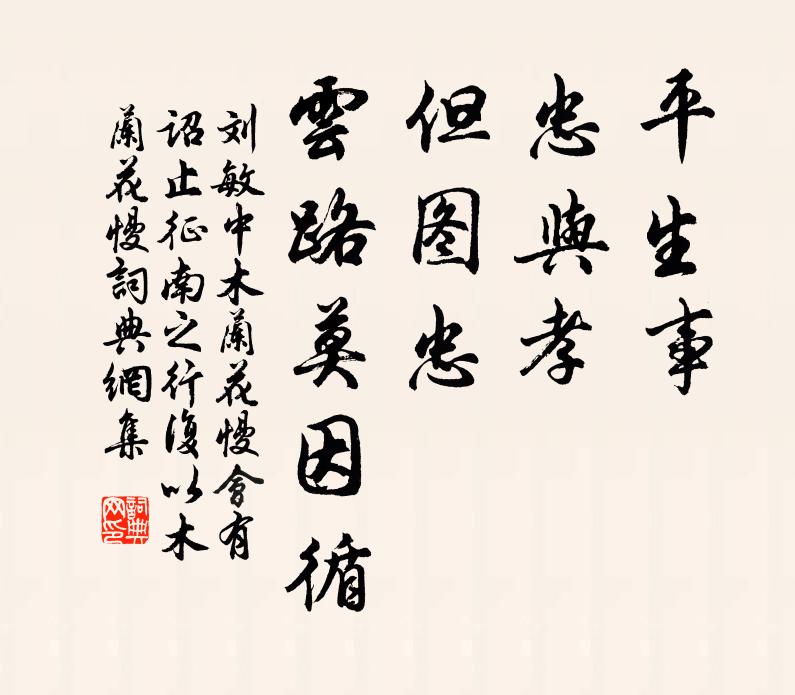 平生事
忠與孝
但图忠
雲路莫因循
刘敏中木蘭花慢會有
詔止征南之行復以木
蘭花慢詞典網集
詞典
网印